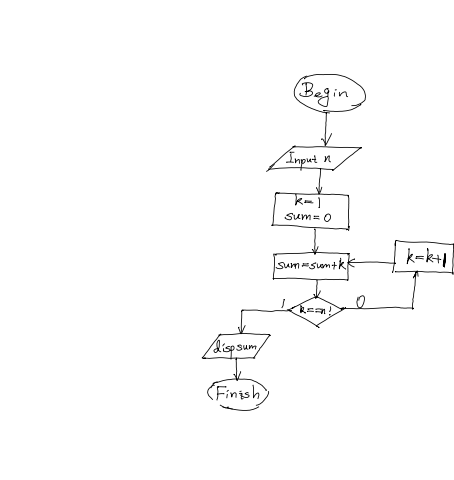 Begin
Input n
k=1
sum=0
sum=sum+k
k=k+1
k==n!
1
0
dispsum
Finish